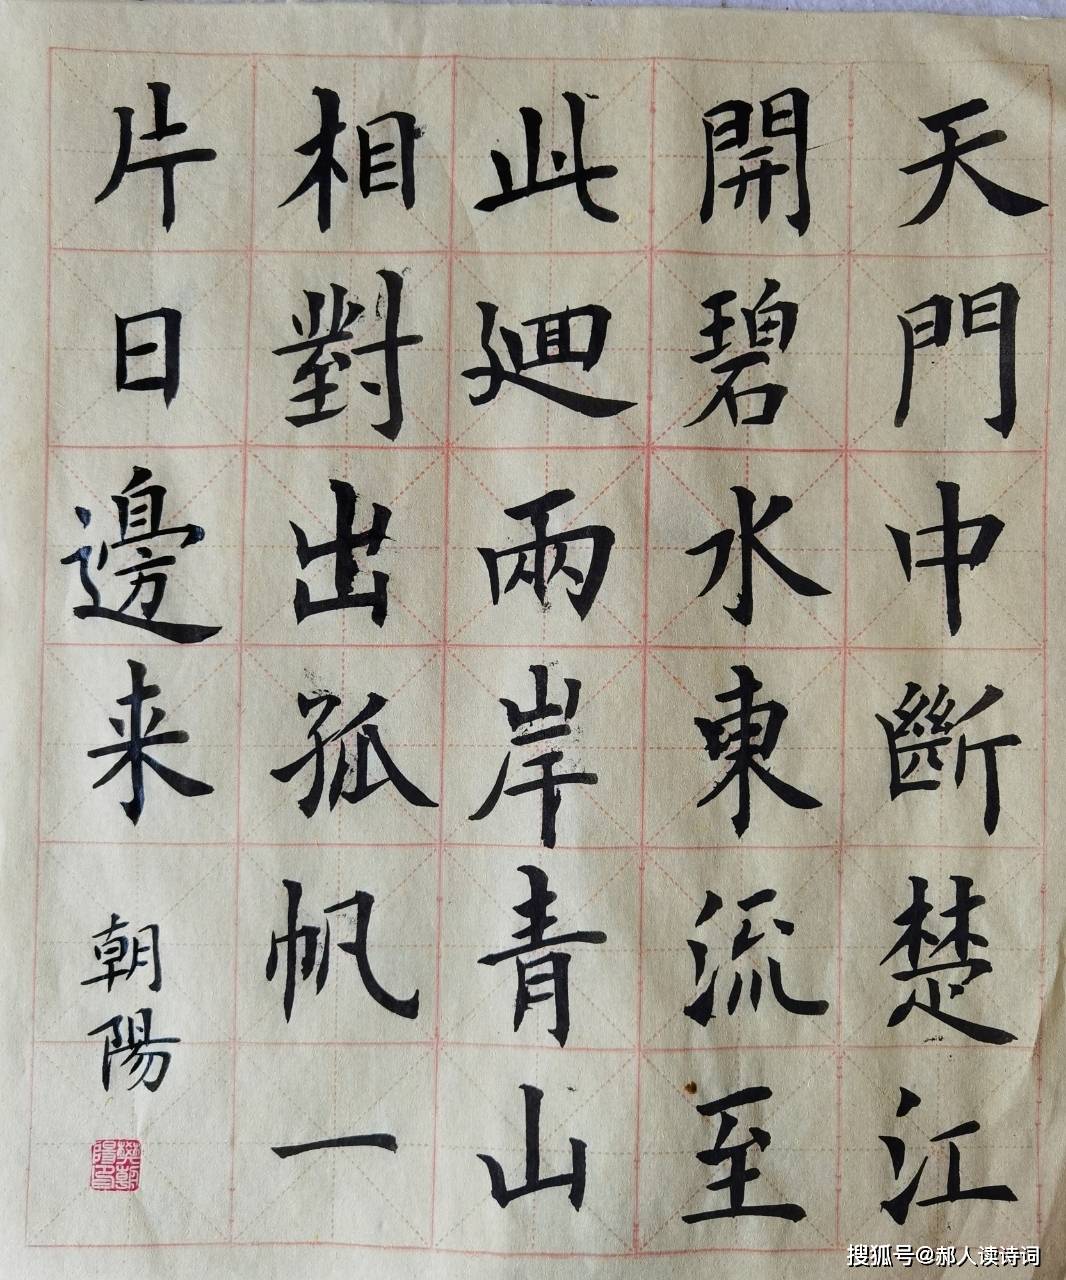 天門中斷楚江
開碧水東流至
此廻兩岸青山
相對出孤帆一
片日邊来
朝陽
樊朝陽印
搜狐号@郝人读诗词